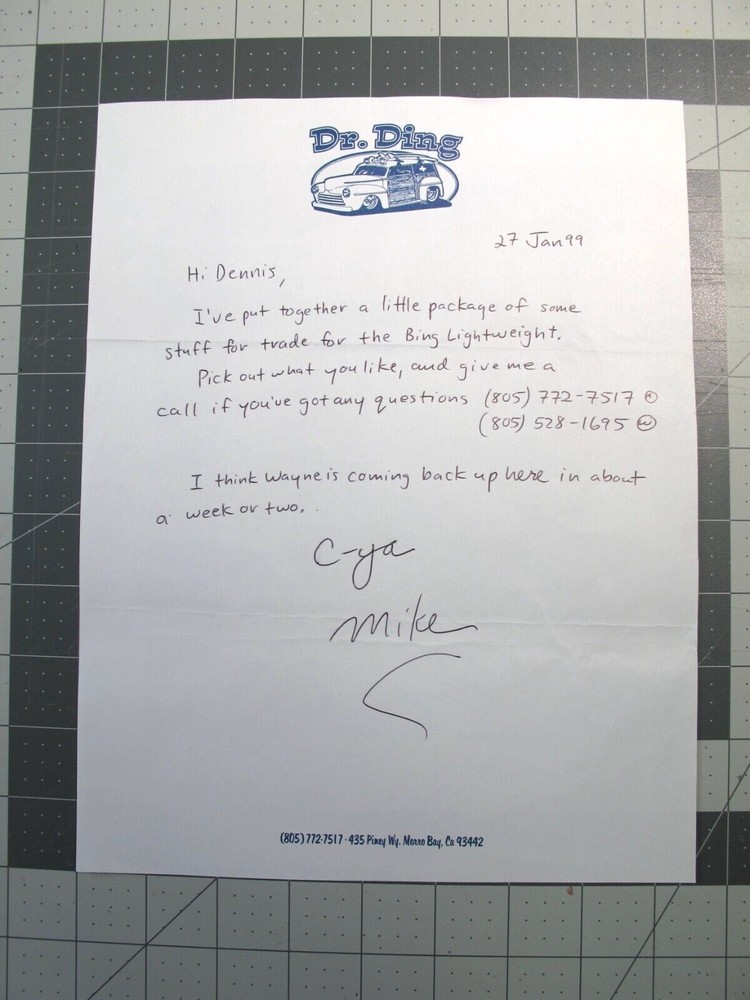 Dr. Ding
27 Jan 99
Hi Dennis,
I've put together a little package of some
stuff for trade for the Bing Lightweight.
Pick out what you like, and give me a
call if you've got any questions (805) 772-7517 Ⓗ
(805) 528-1695 Ⓦ
I think Wayne is coming back up here in about
a week or two.
C-ya
Mike
(805) 772-7517 · 435 Piney Wy. Morro Bay, Ca 93442